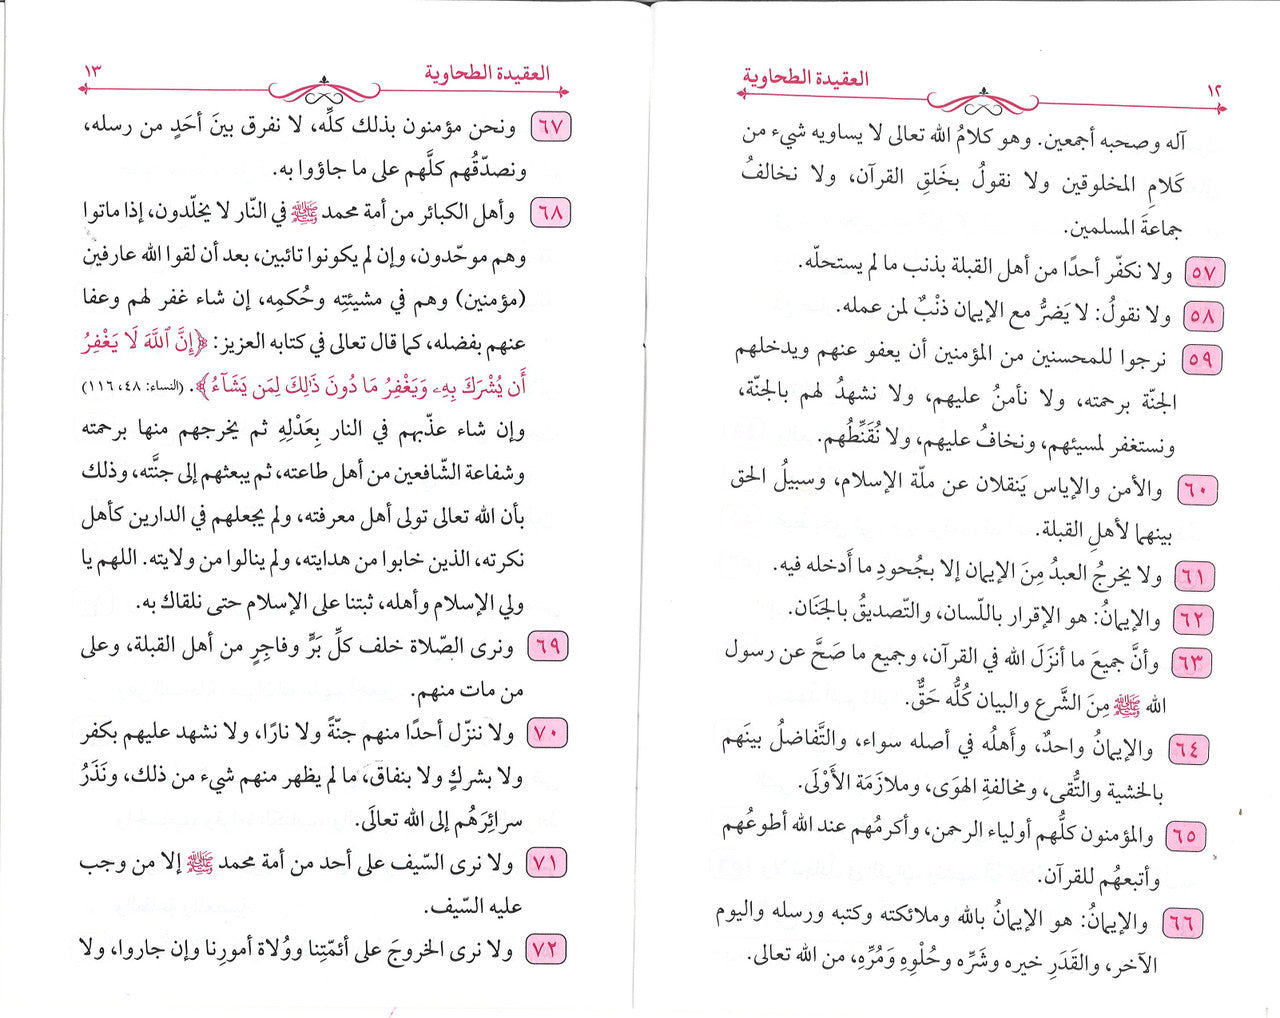 ١٢ العقيدة الطحاوية
آله وصحبه أجمعين. وهو كلامُ الله تعالى لا يساويه شيء من
كَلامِ المخلوقين ولا نقولُ بخَلقِ القرآن، ولا نخالفُ
جماعةَ المسلمين.
٥٧ ولا نكفّر أحدًا من أهل القبلة بذنب ما لم يستحلّه.
٥٨ ولا نقولُ: لا يَضرُّ مع الإيمان ذنْبٌ لمن عمله.
٥٩ نرجوا للمحسنين من المؤمنين أن يعفو عنهم ويدخلهم
الجنّة برحمته، ولا نأمنُ عليهم، ولا نشهدُ لهم بالجنّة،
ونستغفر لمسيئهم، ونخافُ عليهم، ولا نُقَنِّطُهم.
٦٠ والأمن والإياس يَنقلان عن ملّة الإسلام، وسبيلُ الحق
بينهما لأهلِ القبلة.
٦١ ولا يخرجُ العبدُ مِنَ الإيمان إلا بجُحودِ ما أَدخله فيه.
٦٢ والإيمانُ: هو الإقرار باللّسان، والتّصديقُ بالجَنَان.
٦٣ وأنَّ جميعَ ما أنزَلَ الله في القرآن، وجميع ما صَحَّ عن رسول
الله ﷺ مِنَ الشَّرع والبيان كُلُّه حَقٌّ.
٦٤ والإيمانُ واحدٌ، وأَهلُه في أصله سواء، والتَّفاضلُ بينَهم
بالخشية والتُّقى، ومخالفةِ الهوَى، وملازَمَة الأَوْلَى.
٦٥ والمؤمنون كلُّهم أولياء الرحمن، وأكرمُهم عند الله أطوعُهم
وأتبعهُم للقرآن.
٦٦ والإيمانُ: هو الإيمانُ بالله وملائكته وكتبه ورسله واليوم
الآخر، والقَدَرِ خيره وشَرِّه وحُلْوِهِ وَمُرِّهِ، من الله تعالى.
العقيدة الطحاوية ١٣
٦٧ ونحن مؤمنون بذلك كلِّه، لا نفرق بينَ أحَدٍ من رسله،
ونصدّقُهم كلَّهم على ما جاؤوا به.
٦٨ وأهل الكبائر من أمة محمد ﷺ في النّار لا يخلّدون، إذا ماتوا
وهم موحّدون، وإن لم يكونوا تائبين، بعد أن لقوا الله عارفين
(مؤمنين) وهم في مشيئتِه وحُكمِه، إن شاء غفر لهم وعفا
عنهم بفضله، كما قال تعالى في كتابه العزيز: ﴿إِنَّ ٱللَّهَ لَا يَغْفِرُ
أَن يُشْرَكَ بِهِۦ وَيَغْفِرُ مَا دُونَ ذَٰلِكَ لِمَن يَشَآءُ﴾. (النساء: ٤٨، ١١٦)
وإن شاء عذّبهم في النار بِعَدْلِهِ ثم يخرجهم منها برحمته
وشفاعة الشّافعين من أهل طاعته، ثم يبعثهم إلى جنَّته، وذلك
بأن الله تعالى تولى أهل معرفته، ولم يجعلهم في الدارين كأهل
نكرته، الذين خابوا من هدايته، ولم ينالوا من ولايته. اللهم يا
ولي الإسلام وأهله، ثبتنا على الإسلام حتى نلقاك به.
٦٩ ونرى الصّلاة خلف كلِّ بَرٍّ وفاجِرٍ من أهل القبلة، وعلى
من مات منهم.
٧٠ ولا ننزّل أحدًا منهم جنّةً ولا نارًا، ولا نشهد عليهم بكفر
ولا بشركٍ ولا بنفاق، ما لم يظهر منهم شيء من ذلك، ونَذَرُ
سرائِرَهُم إلى الله تعالَى.
٧١ ولا نرى السّيف على أحد من أمة محمد ﷺ إلا من وجب
عليه السّيف.
٧٢ ولا نرى الخروجَ على أئمّتِنا ووُلاة أمورِنا وإن جاروا، ولا